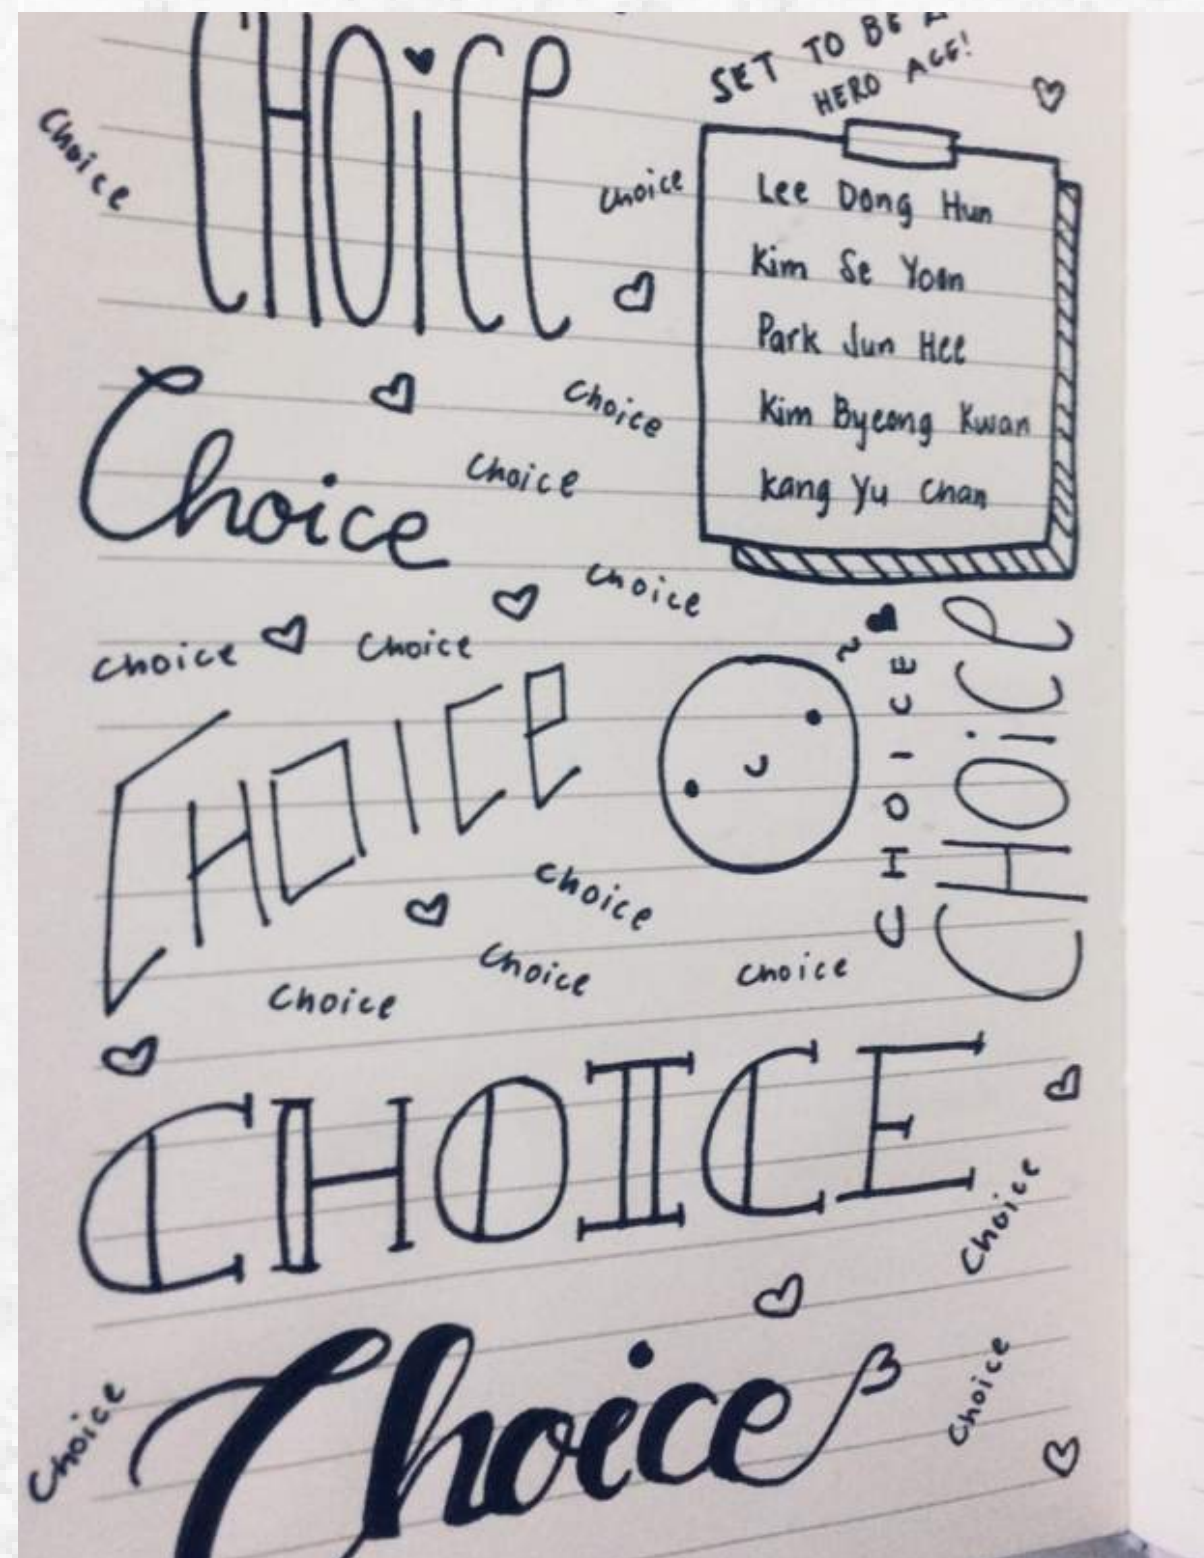 CHOiCe
SET TO BE A
HERO ACE!
Choice
Choice
Lee Dong Hun
Kim Se Yoon
Park Jun Hee
Kim Byeong Kwan
Kang Yu Chan
Choice
Choice
Choice
Choice
Choice
Choice
CHOICe
CHOICE
CHOiCe
Choice
Choice
Choice
Choice
CHOICE
Choice
Choice
Choice
Choice